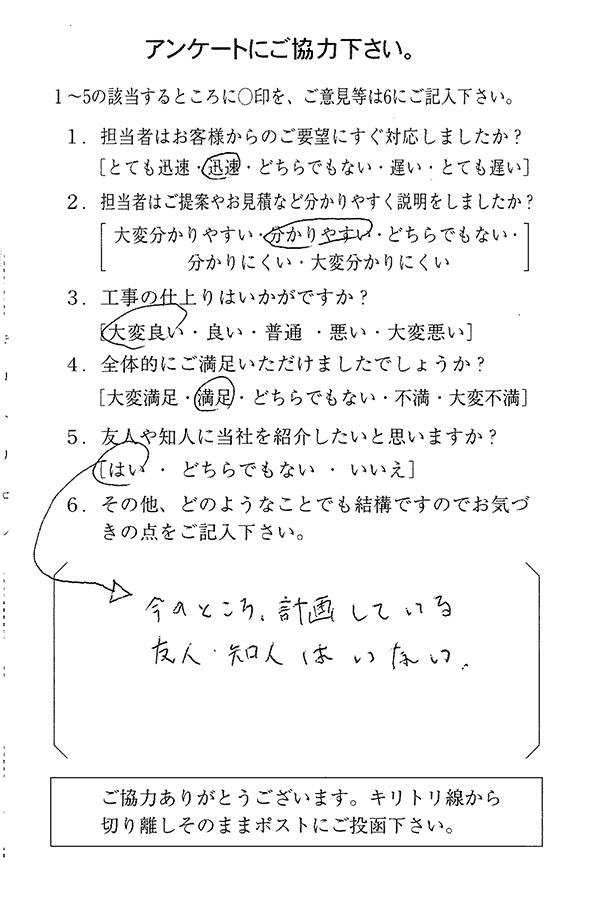 アンケートにご協力下さい。
1～5の該当するところに○印を、ご意見等は6にご記入下さい。
1. 担当者はお客様からのご要望にすぐ対応しましたか？
[とても迅速・迅速・どちらでもない・遅い・とても遅い]
2. 担当者はご提案やお見積など分かりやすく説明をしましたか？
[大変分かりやすい・分かりやすい・どちらでもない・
分かりにくい・大変分かりにくい]
3. 工事の仕上りはいかがですか？
[大変良い・良い・普通・悪い・大変悪い]
4. 全体的にご満足いただけましたでしょうか？
[大変満足・満足・どちらでもない・不満・大変不満]
5. 友人や知人に当社を紹介したいと思いますか？
[はい・どちらでもない・いいえ]
6. その他、どのようなことでも結構ですのでお気づ
きの点をご記入下さい。
今のところ、計画している
友人・知人はいない。
ご協力ありがとうございます。キリトリ線から
切り離しそのままポストにご投函下さい。